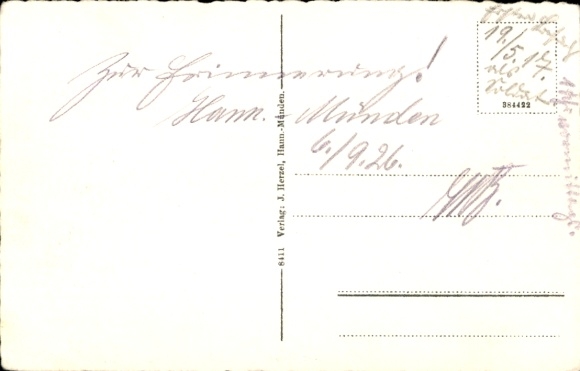 Zur Erinnerung!
Hann. Münden
6./9.26.
Erster Besuch
19./5.17.
als
Soldat
384422
8411 Verlag: J. Herzel, Hann.-Münden.